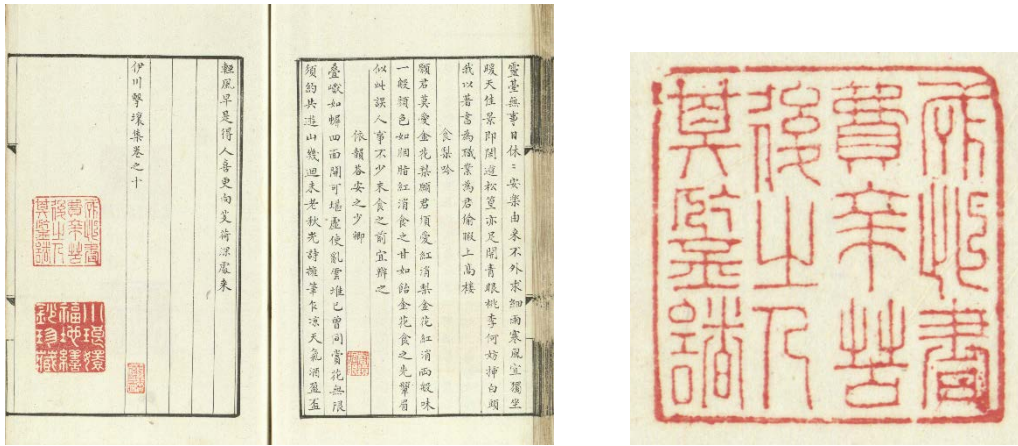 靈臺無事日休〻安樂由來不外求細雨寒風宜獨坐
暖天佳景即閑遊松篁亦足開青眼桃李何妨揷白頭
我以著書為職業為君偷暇上高樓
食梨吟
願君莫愛金花梨願君須愛紅消梨金花紅消兩般味
一般顏色如胭脂紅消食之甘如飴金花食之先顰眉
似此誤人事不少未食之前宜辨之
依韻荅安之少卿
疊巘如幈四面開可堪虛使亂雲堆已曾同賞花無限
須約共遊山幾迴未老秋光詩擁筆乍凉天氣酒盈盃
輕風早是得人喜更向芰荷深處來
伊川擊壤集卷之十
成此書
費辛苦
後之人
其鑒諸
小琅嬛
福地繕
鈔珍藏
成此書
費辛苦
後之人
其鑒諸